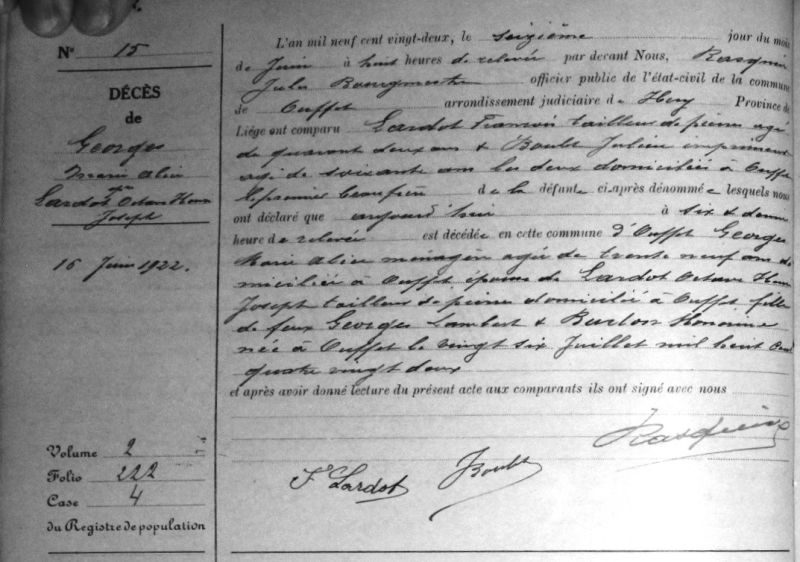 Nº 15
DÉCÈS
de
Georges
Marie Alice
Lardot Octave Henri
Joseph
16 Juin 1922.
Volume 2
Folio 222
Case 4
du Registre de population
L'an mil neuf cent vingt-deux, le seizième jour du mois
de Juin à huit heures de relevée par devant Nous, Rasquin
Jules Bourgmestre officier public de l'état-civil de la commune
de Ouffet arrondissement judiciaire de Huy Province de
Liége ont comparu Lardot François tailleur de pierres agé
de quarante deux ans & Boulet Julien imprimeur
agé de soixante ans les deux domiciliés à Ouffet
le premier beau frère de la défunte ci-après dénommée lesquels nous
ont déclaré que aujourd'hui à six & demie
heure de relevée est décédée en cette commune d'Ouffet Georges
Marie Alice ménagère agée de trente neuf ans do
miciliée à Ouffet épouse de Lardot Octave Henri
Joseph tailleur de pierres domicilié à Ouffet fille
de feux Georges Lambert & Burton Honorine
née à Ouffet le vingt six Juillet mil huit cent
quatre vingt deux
et après avoir donné lecture du présent acte aux comparants ils ont signé avec nous
Rasquin
Fº Lardot JBoulet